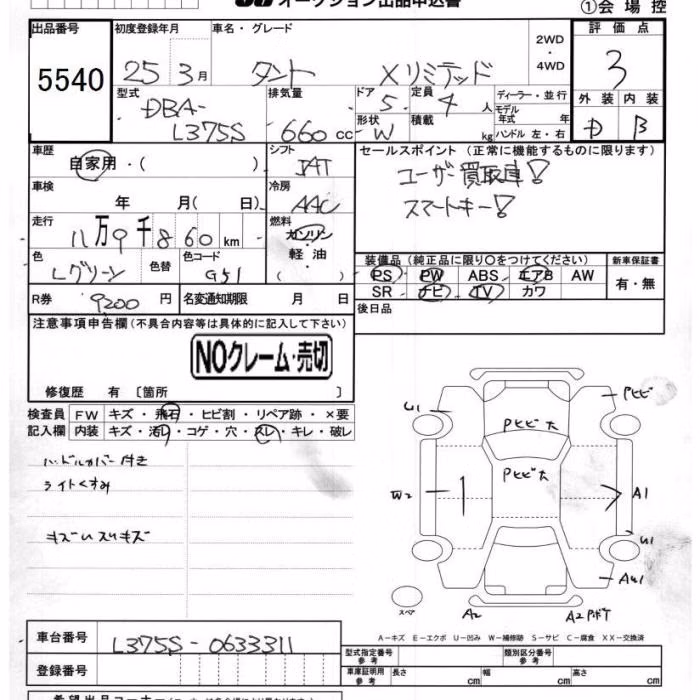 オークション出品申込書
①会場控
出品番号 初度登録年月 車名・グレード 評価点
5540 25年3月 タント Xリミテッド 2WD・4WD 3
型式 排気量 ドア 定員 ディーラー・並行 外装 内装
DBA-L375S 660cc 5 4人 モデル年式 年 D B
形状 積載
W kg ハンドル 左・右
車歴 シフト セールスポイント(正常に機能するものに限ります)
自家用・( ) IAT ユーザー買取車!
車検 冷房 スマートキー!
年 月( 日) AAC
走行 燃料
11万9千860km ガソリン・軽油 ( )
色 色替 カラーコード 装備品(純正品に限り○をつけてください) 新車保証書
Lグリーン G51 PS PW ABS エアB AW 有・無
SR ナビ TV カワ
R券 9200円 名変通知期限 月 日 後日品
注意事項申告欄(不具合内容等は具体的に記入して下さい)
NOクレーム・売切
修復歴 有〔箇所 〕
検査員 FW キズ・飛石・ヒビ割・リペア跡・×要
記入欄 内装 キズ・汚れ・コゲ・穴・スレ・キレ・破レ
ハンドルカバー付き
ライトくすみ
U1 Pヒビ大 Pヒビ
Pヒビ大
W2 A1
U1
AU1
スペア A2 A2
A−キズ E−エクボ U−凹み W−補修跡 S−サビ C−腐食 XX−交換済
車台番号 L375S-0633311 型式指定番号 参考 類別区分番号 参考
登録番号 車庫証明用 参考 長さ cm 幅 cm 高さ cm